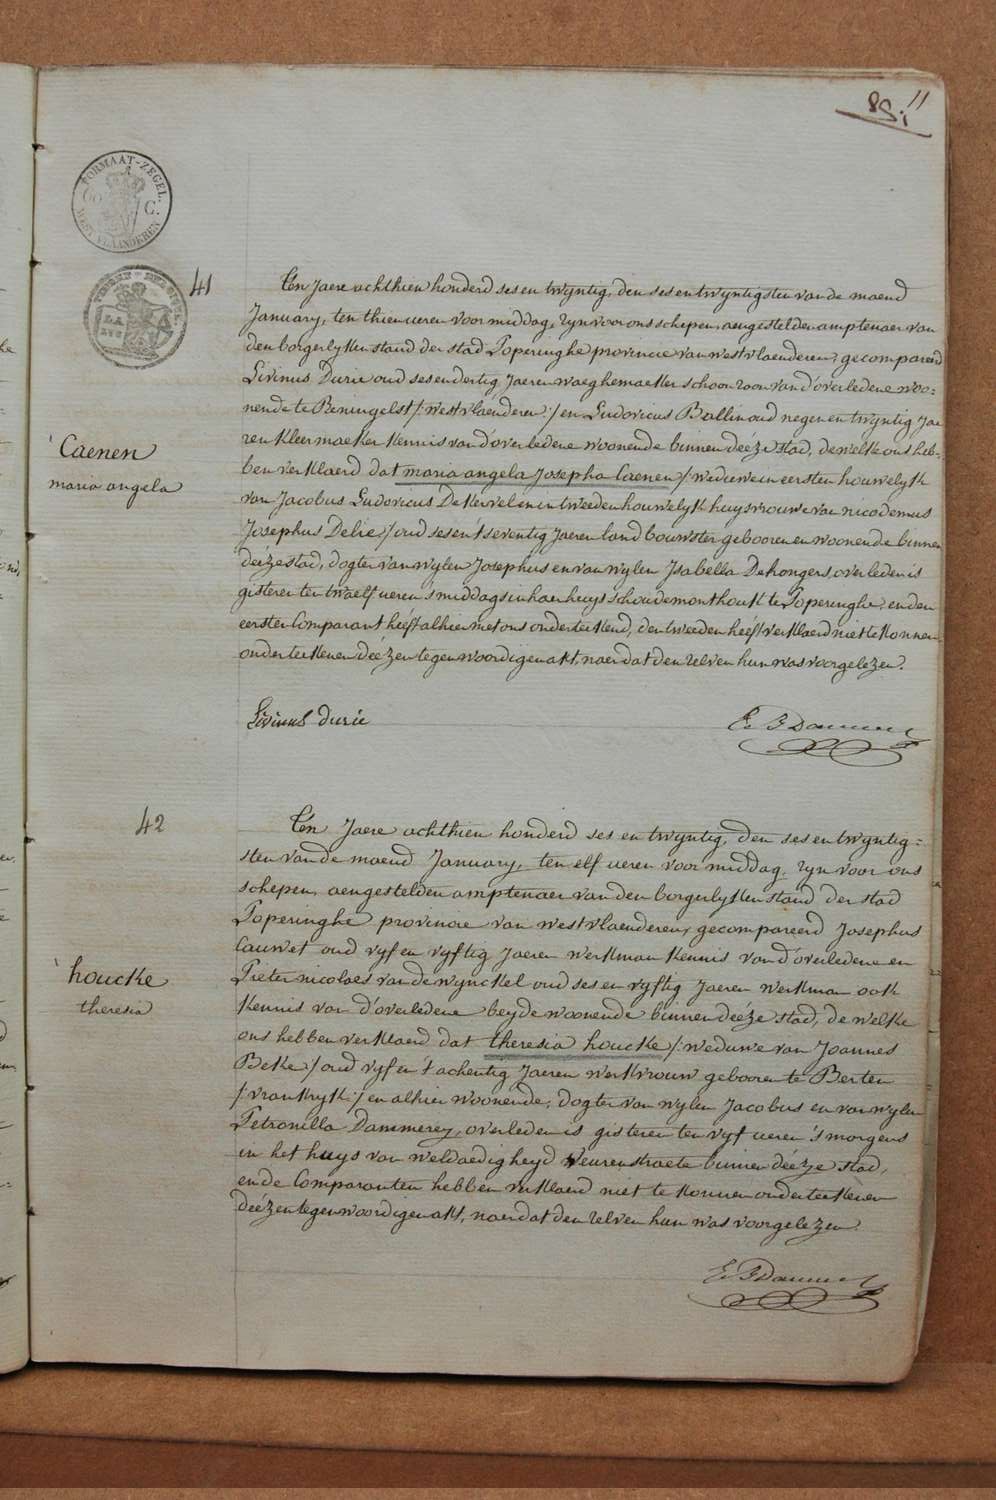 11
FORMAAT-ZEGEL.
WEST VLAANDEREN
41
Ten Jaere achthien honderd ses en twyntig, den ses en twyntigsten van de maend
January, ten thien ueren voor middag, zyn voor ons schepen, aengestelden amptenaer van
den borgerlyken stand der stad Poperinghe provincie van westvlaenderen, gecompareerd
Livinus Durie oud ses en dertig Jaeren waeghemaeker schoonzoon van d'overledene woo-
nende te Reningelst /: westvlaenderen :/ en Ludovicus Ballin oud negen en twyntig Jae
ren kleermaeker kennis van d'overledene woonende binnen deéze stad, de welke ons heb-
ben verklaerd dat maria angela Josepha Caenen /: weduwe in eersten houwelyk
van Jacobus Ludovicus De Kervel en in tweeden houwelyk huysvrouwe van nicodemus
Josephus Delie :/ oud ses en t'seventig Jaeren landbouwster gebooren en woonende binnen
deéze stad, dogter van wylen Josephus en van wylen Isabella Dehongers, overleden is
gisteren ten twaelf ueren 's middags in haer huys schoudemonthouk te Poperinghe, en den
eersten Comparant heéft alhier met ons onderteekend, den tweeden heéft verklaerd niet te konnen
onderteekenen deézen tegenwoordigen akt, naer dat den zelven hun was voorgelezen.
Caenen
maria angela
Livinus durie
42
Ten Jaere achthien honderd ses en twyntig, den ses en twyntig=
sten van de maend January, ten elf ueren voor middag, zyn voor ons
schepen, aengestelden amptenaer van den borgerlyken stand der stad
Poperinghe provincie van westvlaenderen, gecompareerd Josephus
Cauwet oud vyf en vyftig Jaeren werkman kennis van d'overledene en
Pieter nicolaes van de wynckel oud ses en vyftig Jaeren werkman ook
kennis van d'overledene beyde woonende binnen deéze stad, de welke
ons hebben verklaerd dat theresia houcke /: weduwe van Joannes
Beke :/ oud vyf en t'achentig Jaeren werkvrouw gebooren te Berten
/: vrankryk :/ en alhier woonende, dogter van wylen Jacobus en van wylen
Petronilla Dammerey, overleden is gisteren ten vyf ueren 's morgens
in het huys van weldaedigheyd veurenstraete binnen deéze stad,
en de Comparanten hebben verklaerd niet te konnen onderteekenen
deézen tegenwoordigen akt, naer dat den zelven hun was voorgelezen.
houcke
theresia